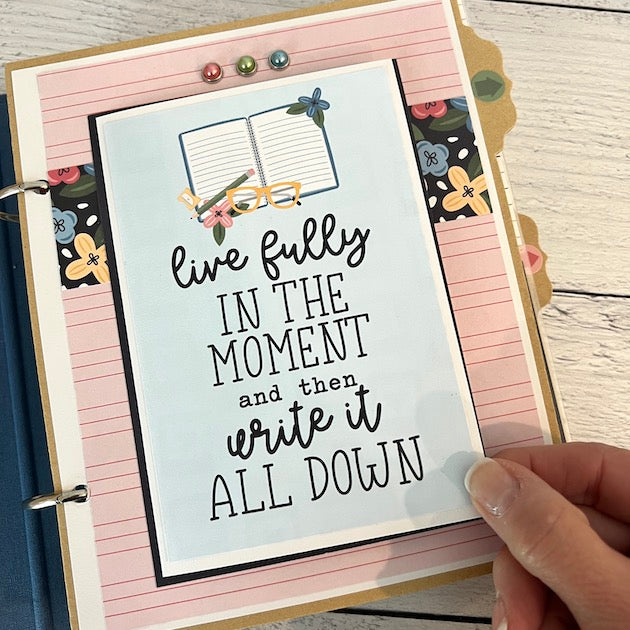 live fully
IN THE
MOMENT
and then
write it
ALL DOWN